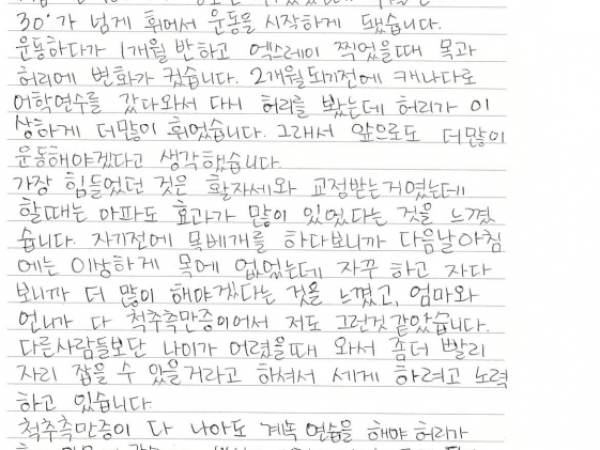 30°가 넘게 휘어서 운동을 시작하게 됐습니다.
운동하다가 1개월 반하고 엑스레이 찍었을때 목과
허리에 변화가 컸습니다. 2개월되기전에 캐나다로
어학연수를 갔다와서 다시 허리를 봤는데 허리가 이
상하게 더많이 휘었습니다. 그래서 앞으로도 더많이
운동해야겠다고 생각했습니다.
가장 힘들었던 것은 활자세와 교정받는거였는데
할때는 아파도 효과가 많이 있었다는 것을 느꼈
습니다. 자기전에 목베개를 하다보니까 다음날아침
에는 이상하게 목에 없었는데 자꾸 하고 자다
보니까 더 많이 해야겠다는 것을 느꼈고, 엄마와
언니가 다 척추측만증이어서 저도 그런것 같았습니다.
다른사람들보단 나이가 어렸을때 와서 좀더 빨리
자리 잡을 수 있을거라고 하셔서 세게 하려고 노력
하고 있습니다.
척추측만증이 다 나아도 계속 연습을 해야 허리가